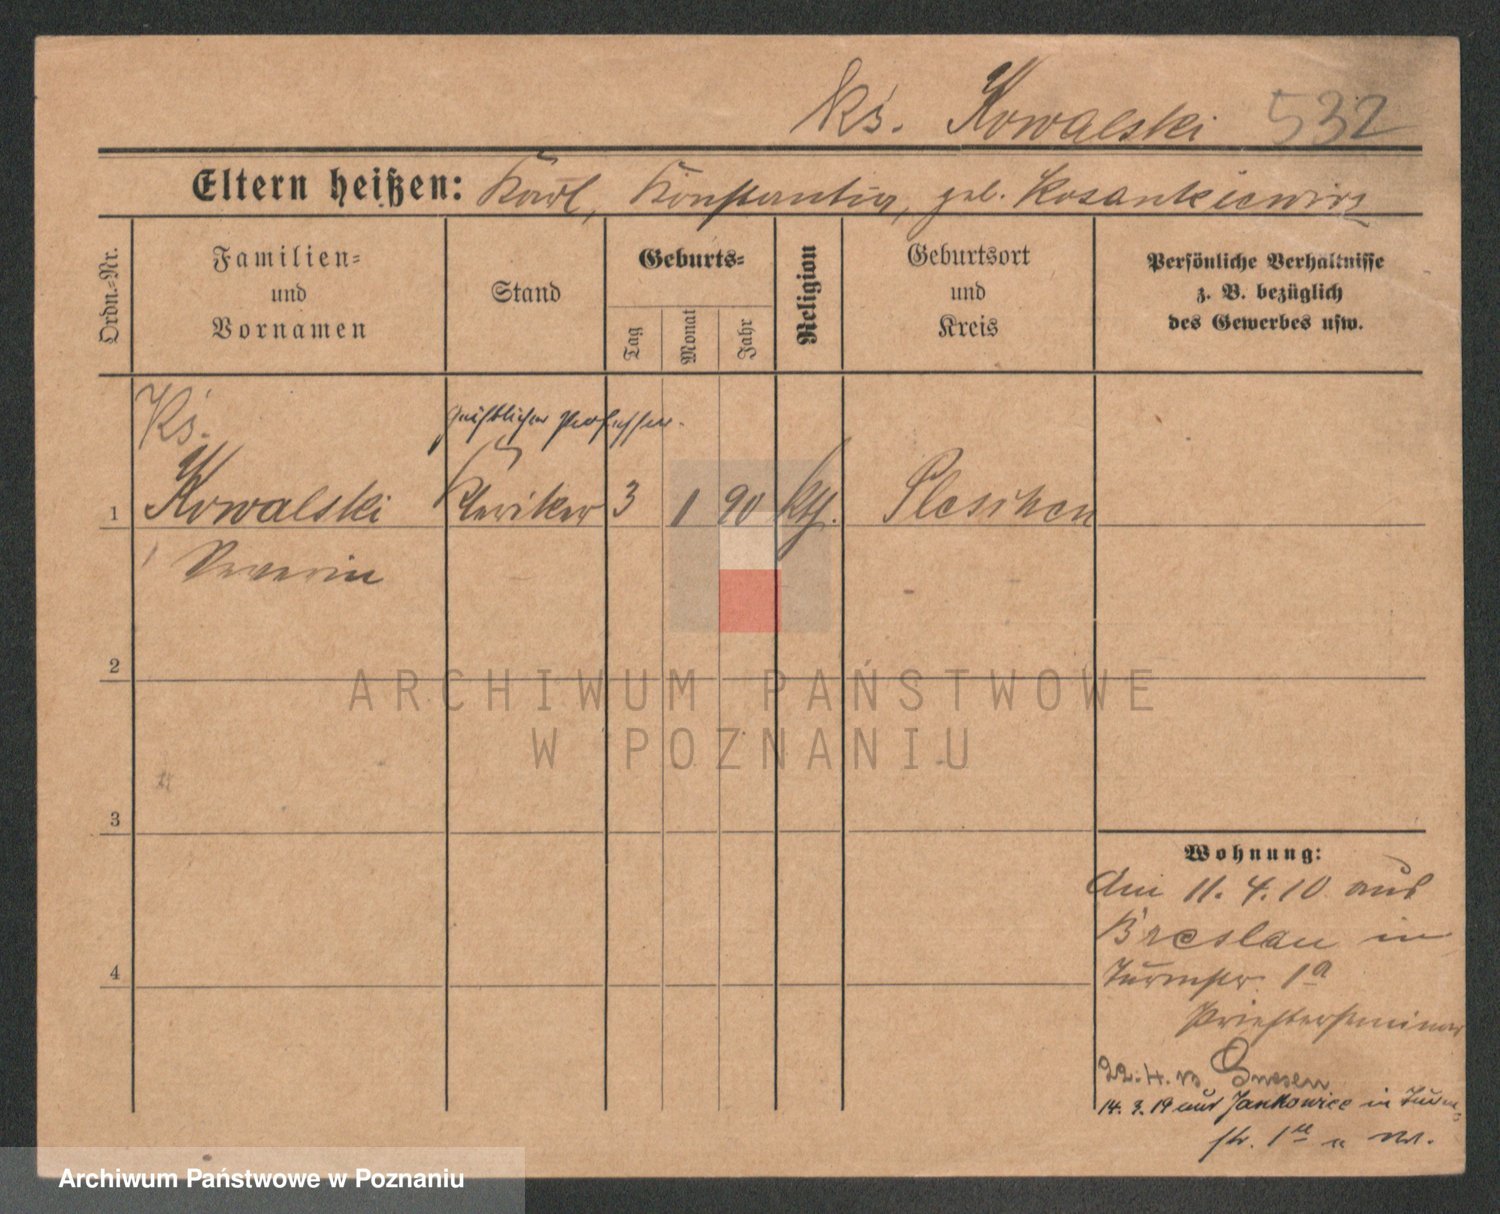 ks. Kowalski 532
Eltern heißen: Karl, Konstantia, geb. Kosankiewicz
Ordn.-Nr.
Familien-
und
Vornamen
Stand
Geburts-
Tag
Monat
Jahr
Religion
Geburtsort
und
Kreis
Persönliche Verhältnisse
z. B. bezüglich
des Gewerbes usw.
Ks.
geistlicher Professor.
1 Kowalski Kleriker 3 1 90 kth. Pleschen
Severin
2
3
4
Wohnung:
Am 11.4.10 aus
Breslau in
Turmstr. 1a
Priesterseminar
22.4.13 Gnesen
14.3.19 aus Jankowice in Turm-
str. 1
ARCHIWUM PAŃSTWOWE
W POZNANIU
Archiwum Państwowe w Poznaniu